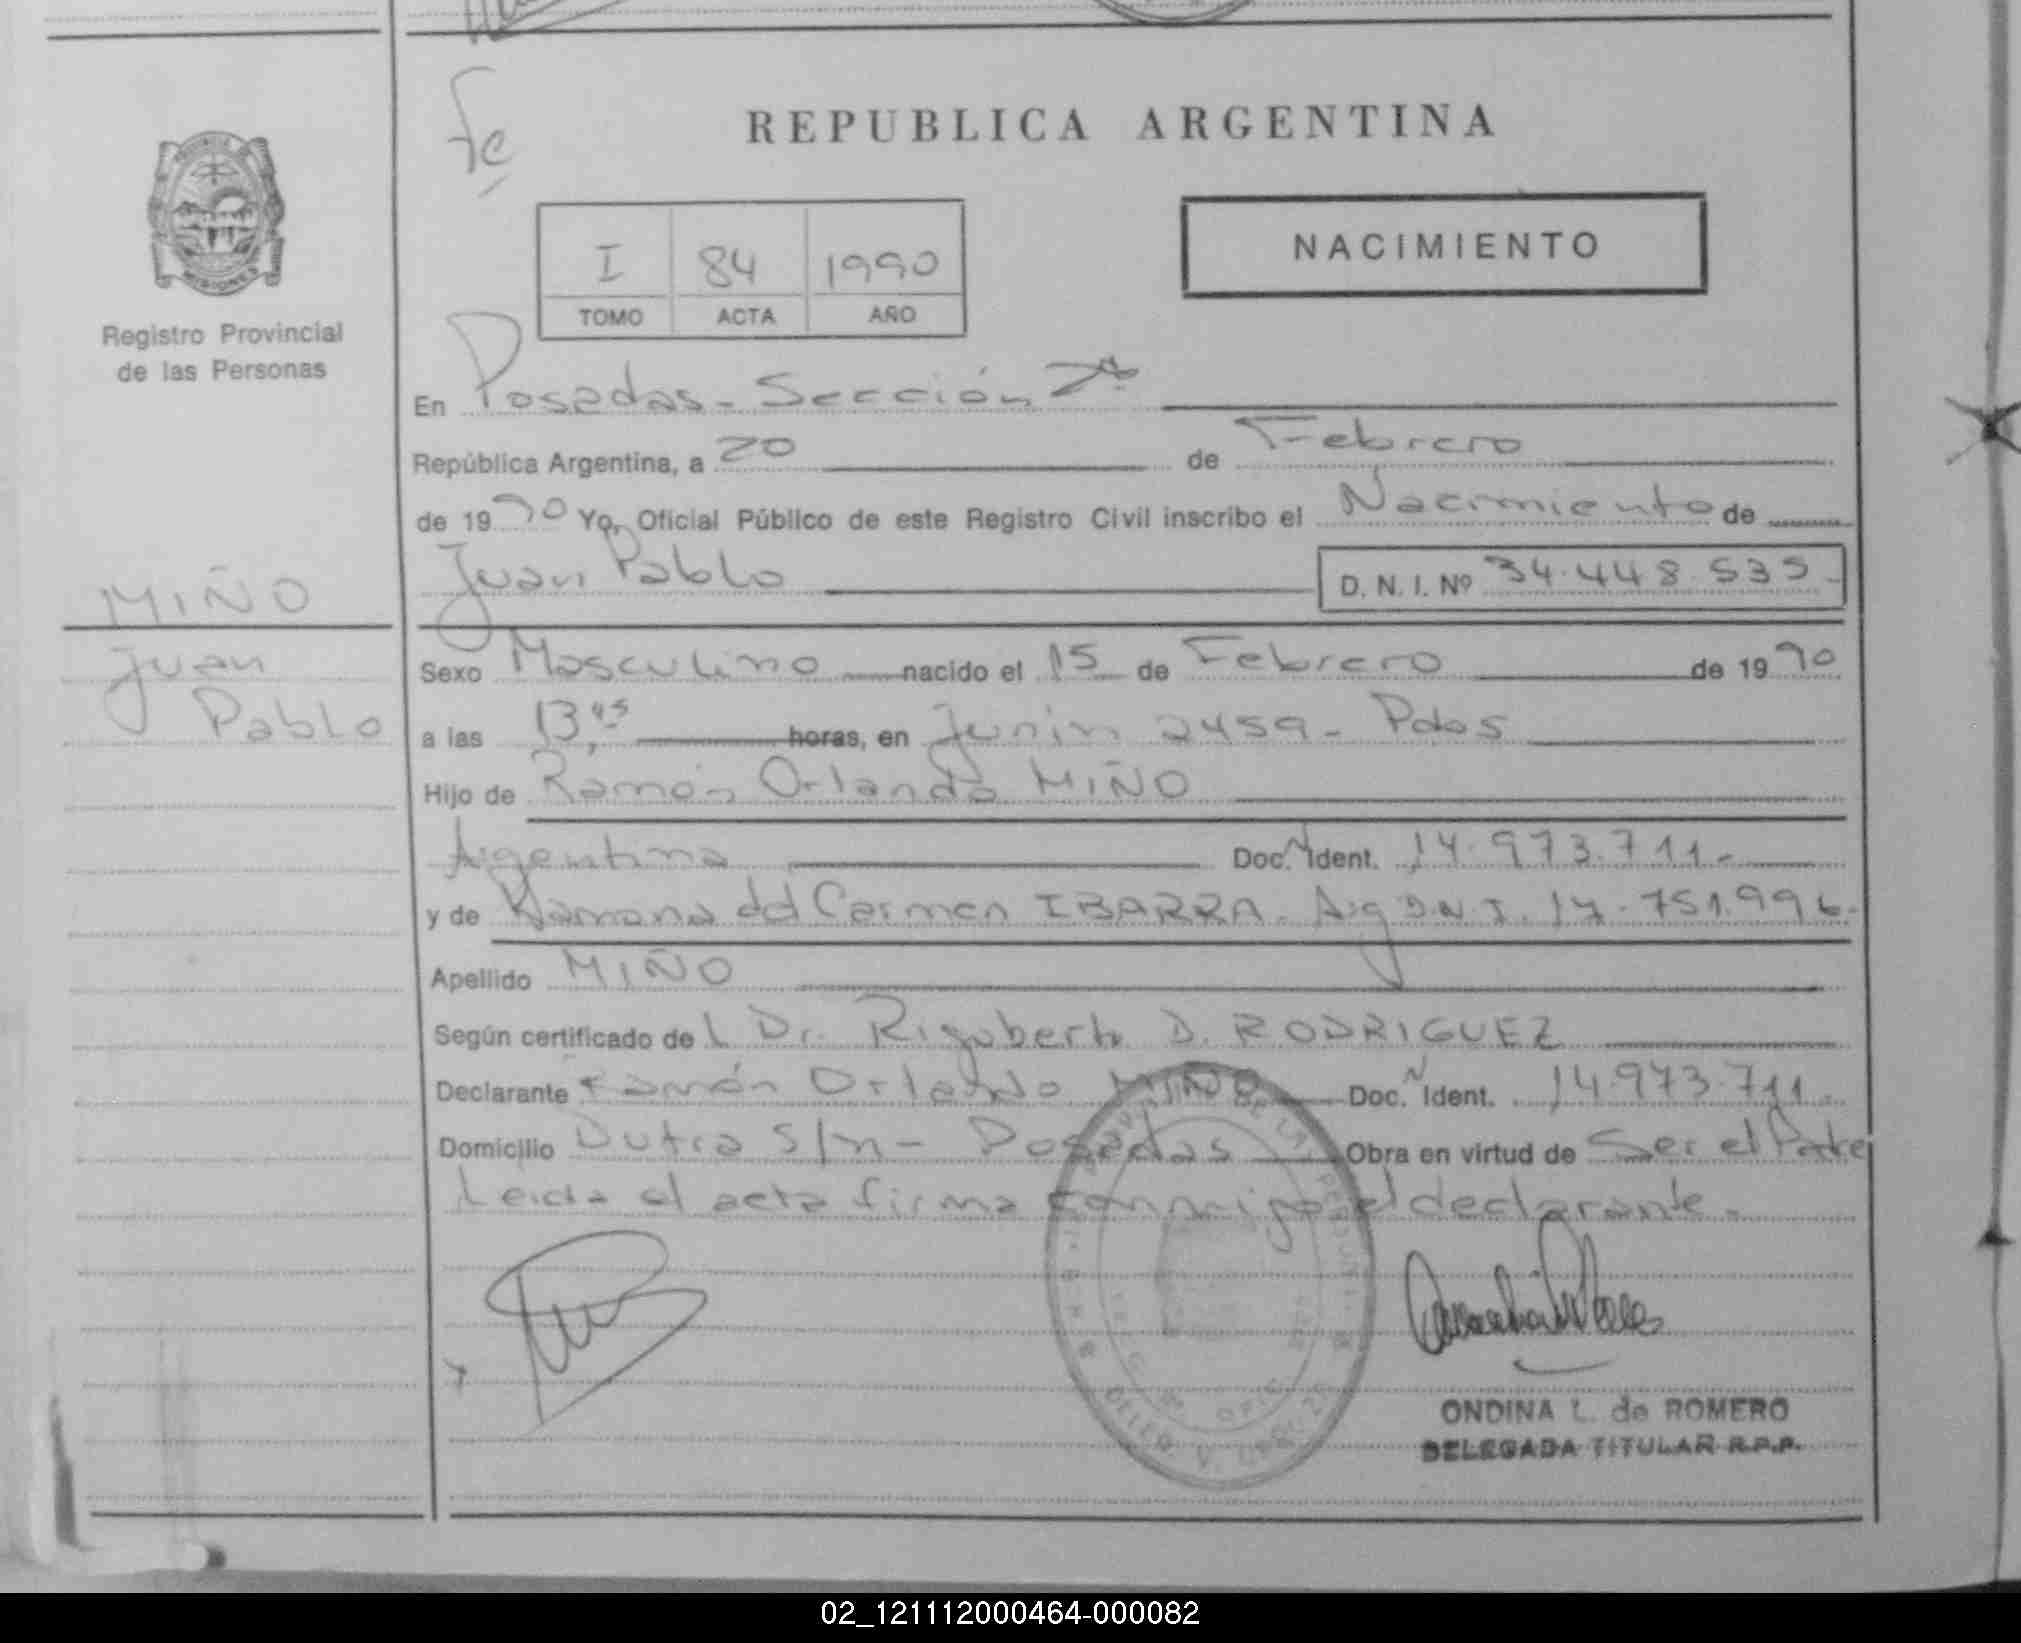 Fe
REPUBLICA ARGENTINA
I 84 1990
TOMO ACTA AÑO
NACIMIENTO
MISIONES
Registro Provincial
de las Personas
En Posadas - Sección 7ª
República Argentina, a 20 de Febrero
de 1990 Yo, Oficial Público de este Registro Civil inscribo el Nacimiento de
Juan Pablo D. N. I. Nº 34.448.535
MIÑO
Juan
Pablo
Sexo Masculino nacido el 15 de Febrero de 1990
a las 13,45 horas, en Junín 2459 - Pdas
Hijo de Ramón Orlando MIÑO
Argentina Doc. Ident. 14.973.711.-
y de Ramona del Carmen IBARRA - Arg D.N.I. 17.751.996.
Apellido MIÑO
Según certificado de l Dr. Rigoberto D. RODRIGUEZ
Declarante Ramón Orlando MIÑO Doc. Ident. 14.973.711.
Domicilio Dutra S/n - Posadas Obra en virtud de Ser el Padre
Leida el acta firma conmigo el declarante.
ONDINA L. de ROMERO
DELEGADA TITULAR R.P.P.
02_121112000464-000082